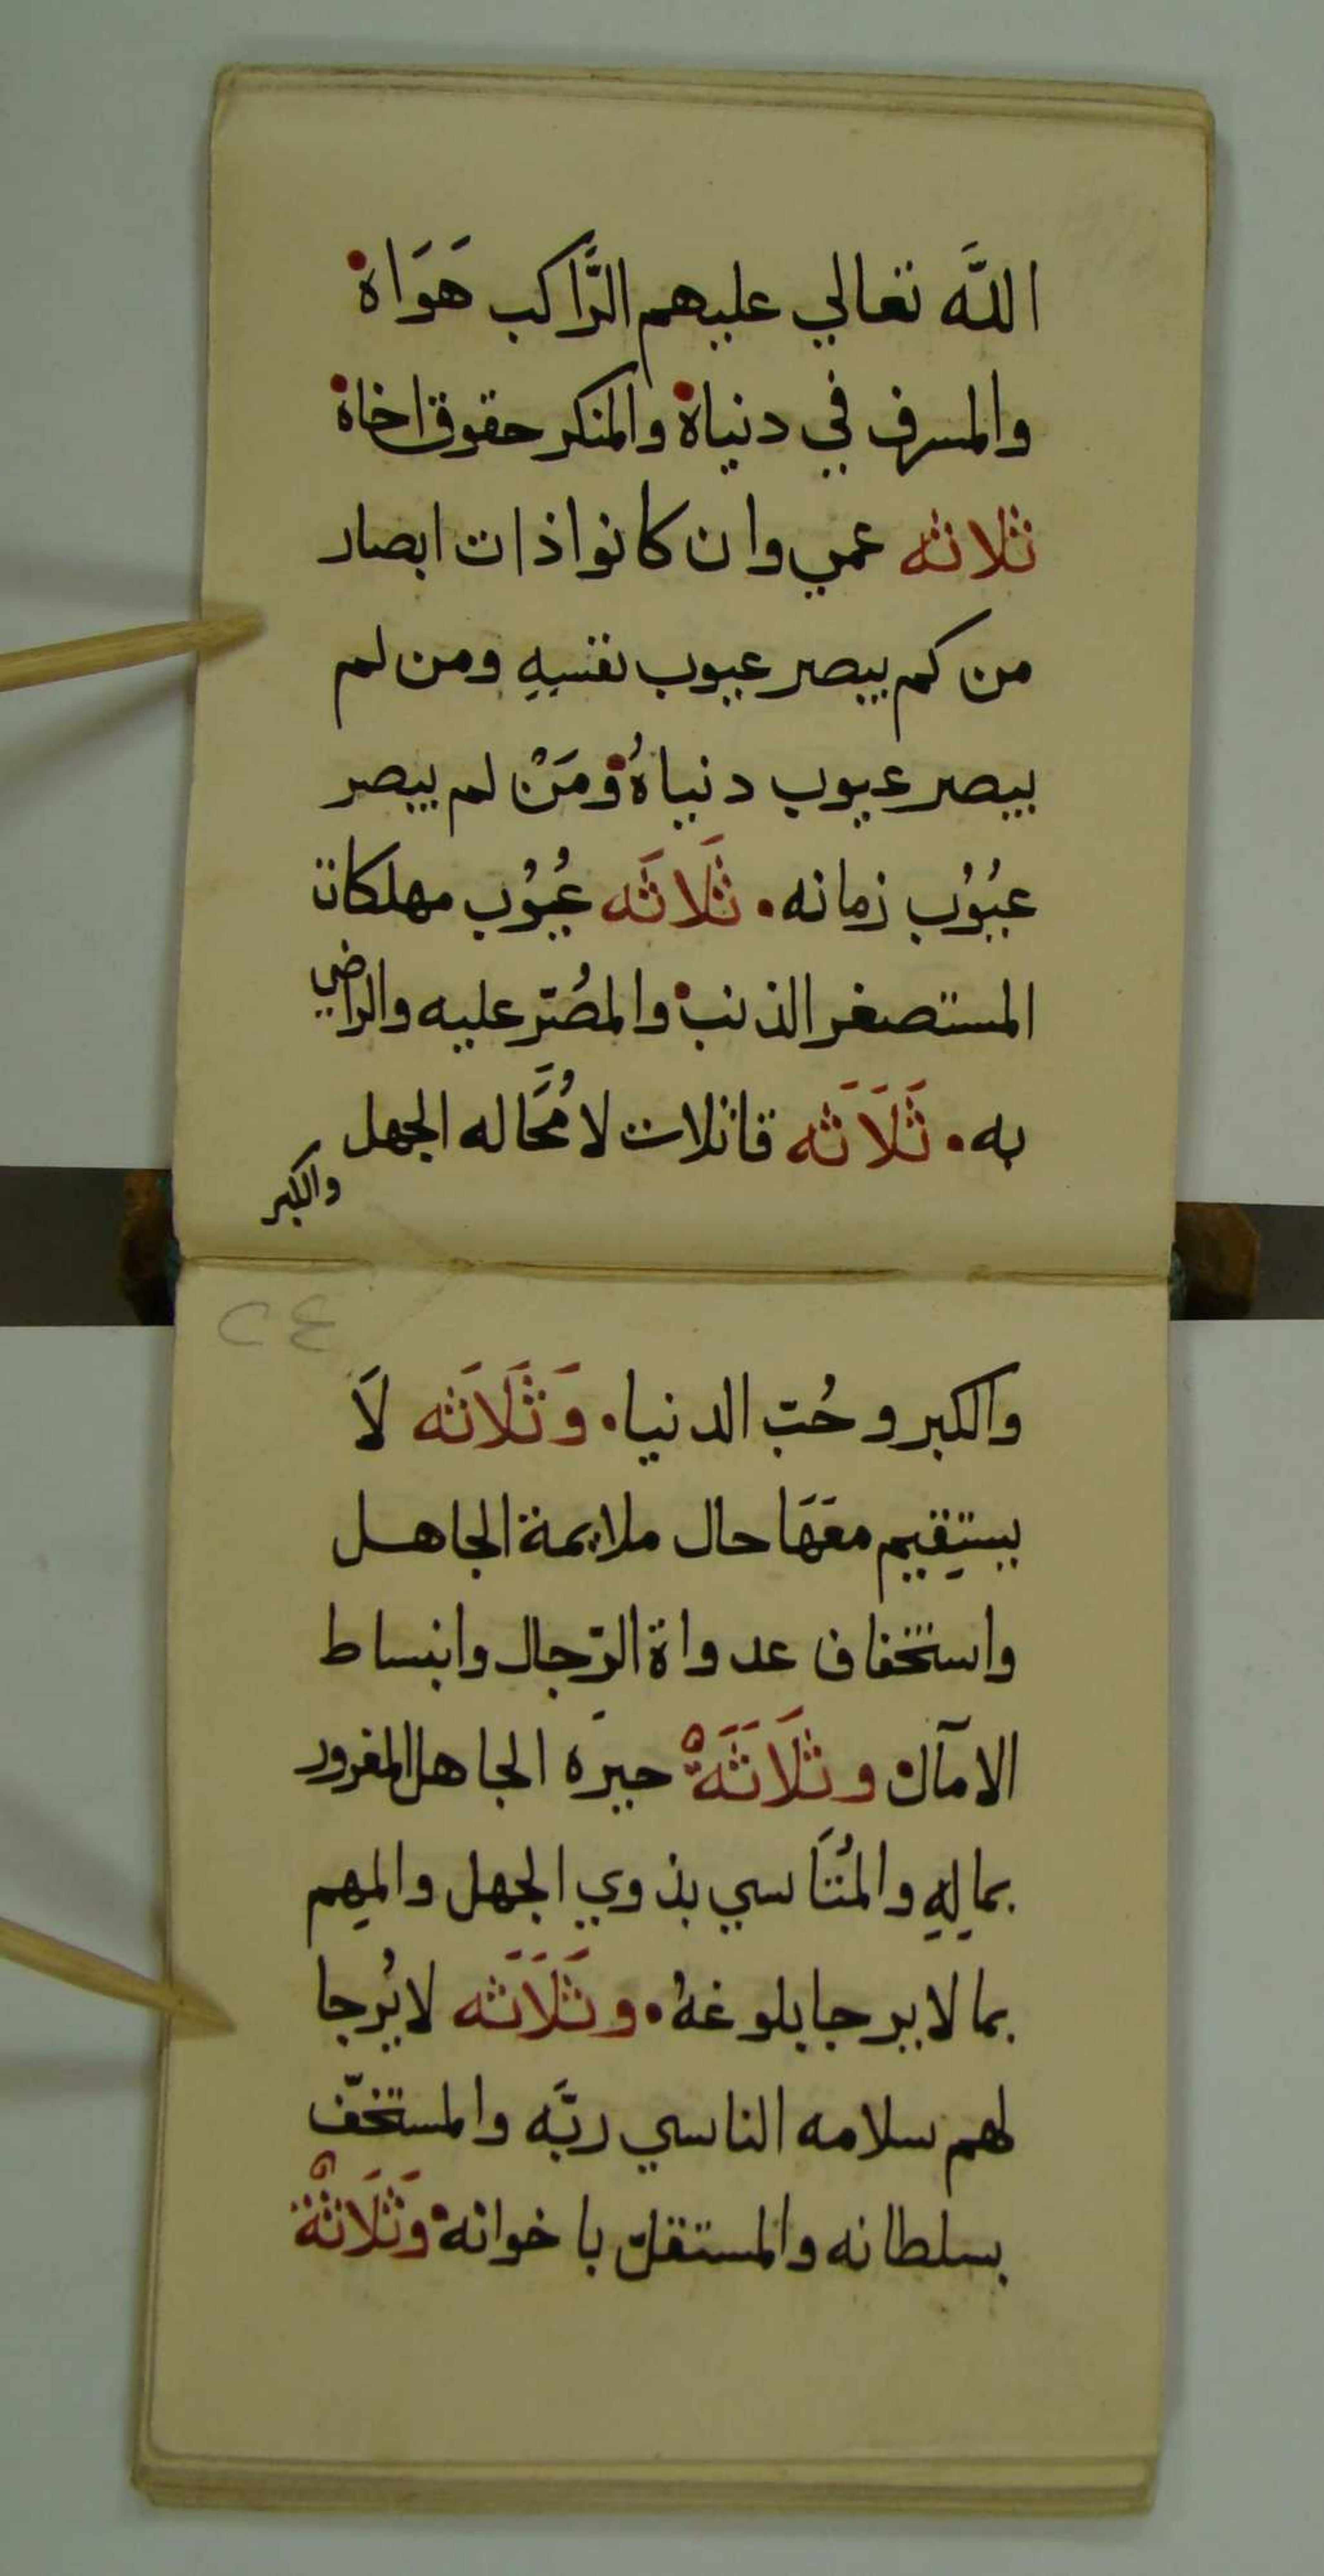 اللَّه تعالي عليهم الرَّاكب هَوَاه
والمسرف في دنياه والمنكر حقوق اخاه
ثلاثه عمي وان كانوا ذات ابصار
من لم يبصر عيوب نفسِهِ ومن لم
يبصر عيوب دنياهُ ومَنْ لم يبصر
عيُوُب زمانه. ثَلاثَه عُيُوُب مهلكاة
المستصغر الذنب والمصُرّ عليه والراضي
به. ثَلَاَثه قاتلات لا مُحَّاله الجهل
والكبر
٢٤
والكبر وحُبّ الدنيا. وَثَلَاثَه لَا
يستِقيم معَهَا حال ملايمة الجاهل
واستخفاف عداوة الرّجال وانبساط
الامآل وثَلَاَثَةْ حيره الجاهل المغرور
بمالِهِ والمُتَاسي بذوي الجهل والمِهم
بما لا يرجا بلوغهُ. وثَلَاَثه لا يُرجا
لهم سلامه الناسي ربَّه والمستخفّ
بسلطانه والمستقلّ باخوانه وَثَلَاثةْ